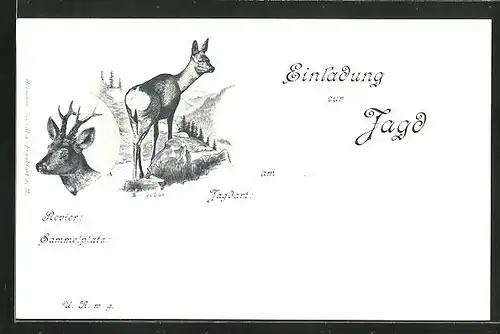 Einladung
zur
Jagd
am
Jagdart:
Revier:
Sammelplatz:
U. A. w. g.